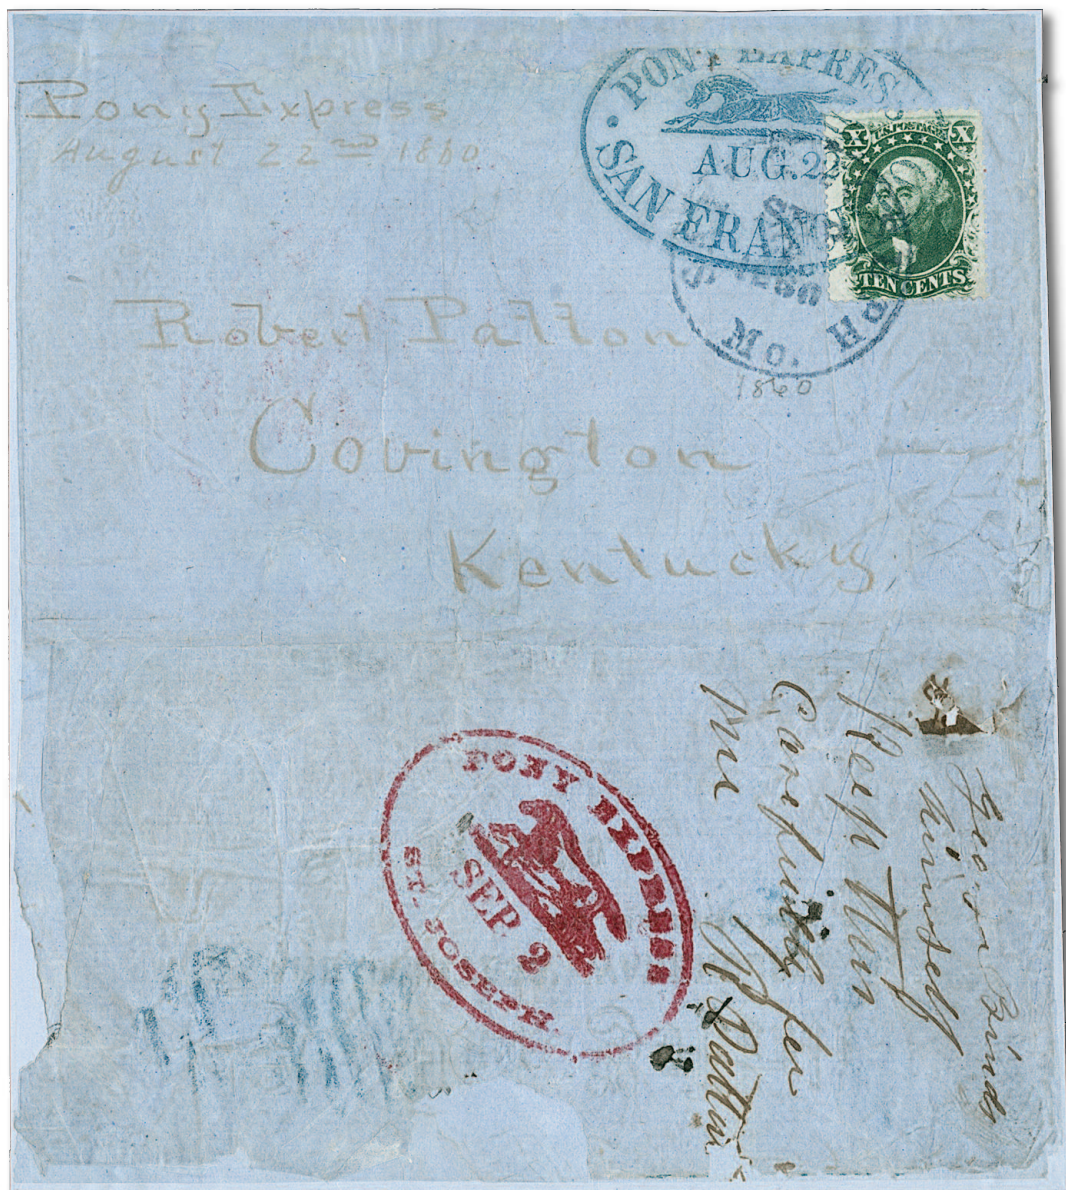 Pony Express
August 22nd 1860
PONY EXPRESS
AUG. 22
SAN FRANC
X U.S. POSTAGE X
TEN CENTS
MO.
1860
Robert Patton
Covington
Kentucky
PONY EXPRESS
SEP 2
ST. JOSEPH
himself
Keep this
Carefully for
me